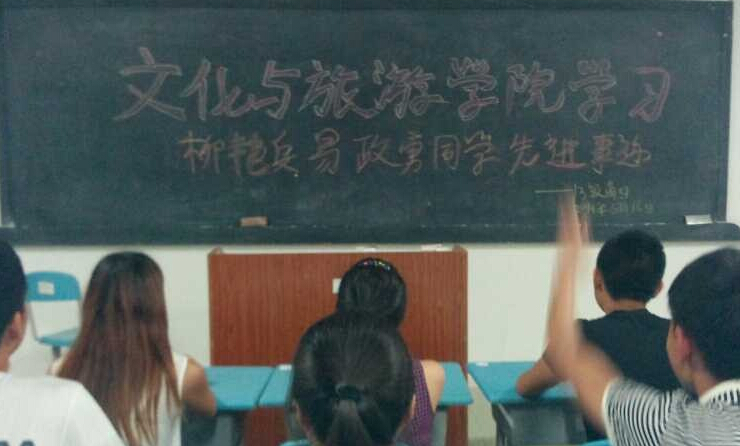 文化与旅游学院学习
柳艳兵易政勇同学先进事迹